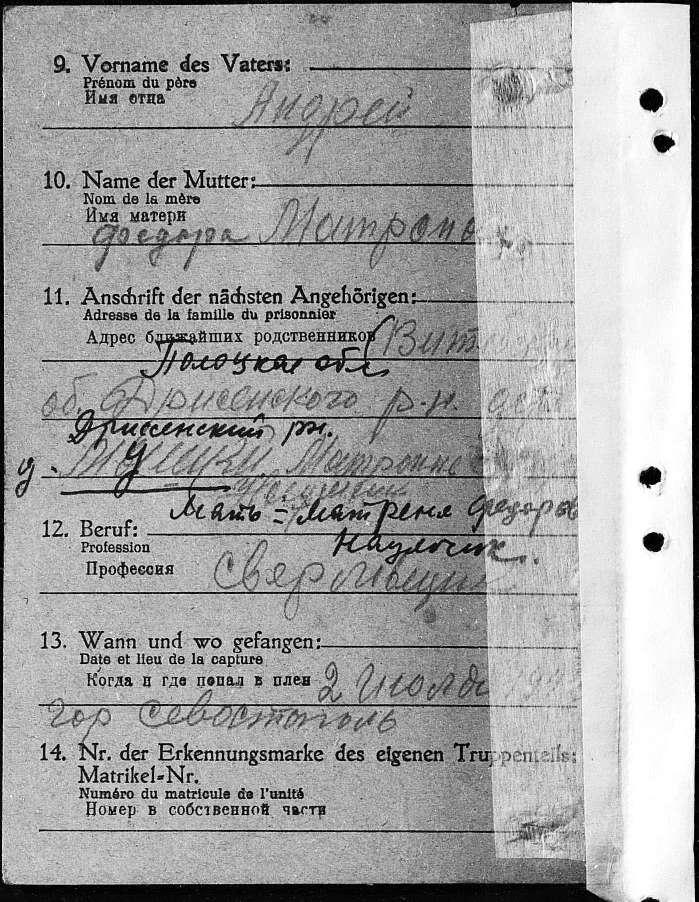 9. Vorname des Vaters:
Prénom du père
Имя отца
Андрей
10. Name der Mutter:
Nom de la mère
Имя матери
федора Матрона
11. Anschrift der nächsten Angehörigen:
Adresse de la famille du prisonnier
Адрес ближайших родственников
Полоцкая обл
об. Дрисенского р-н.
Дриссенский рн.
д. Матронна
Мать = Матрена Федоров
12. Beruf:
Profession
Профессия
13. Wann und wo gefangen:
Date et lieu de la capture
Когда и где попал в плен 2 июля
гор Севостополь
14. Nr. der Erkennungsmarke des eigenen Truppenteils:
Matrikel-Nr.
Numéro du matricule de l'unité
Номер в собственной части